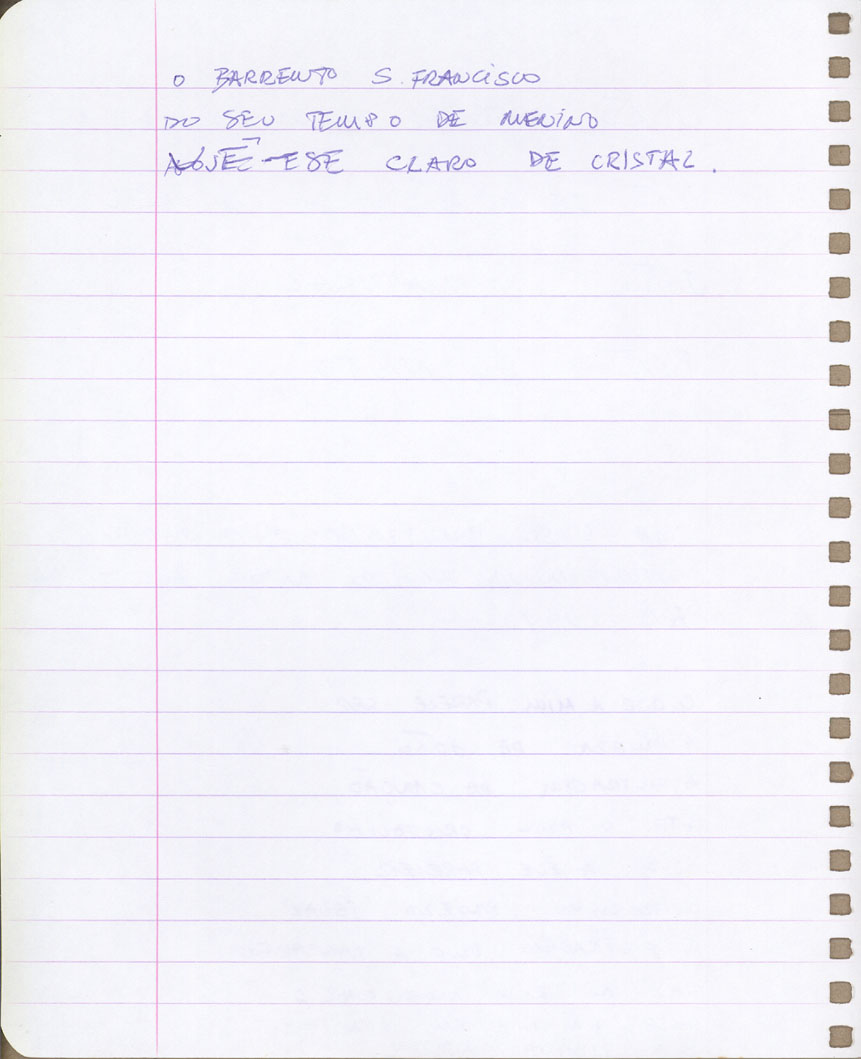 O BARRENTO S. FRANCISCO
DO SEU TEMPO DE MENINO
CLARO DE CRISTAL.